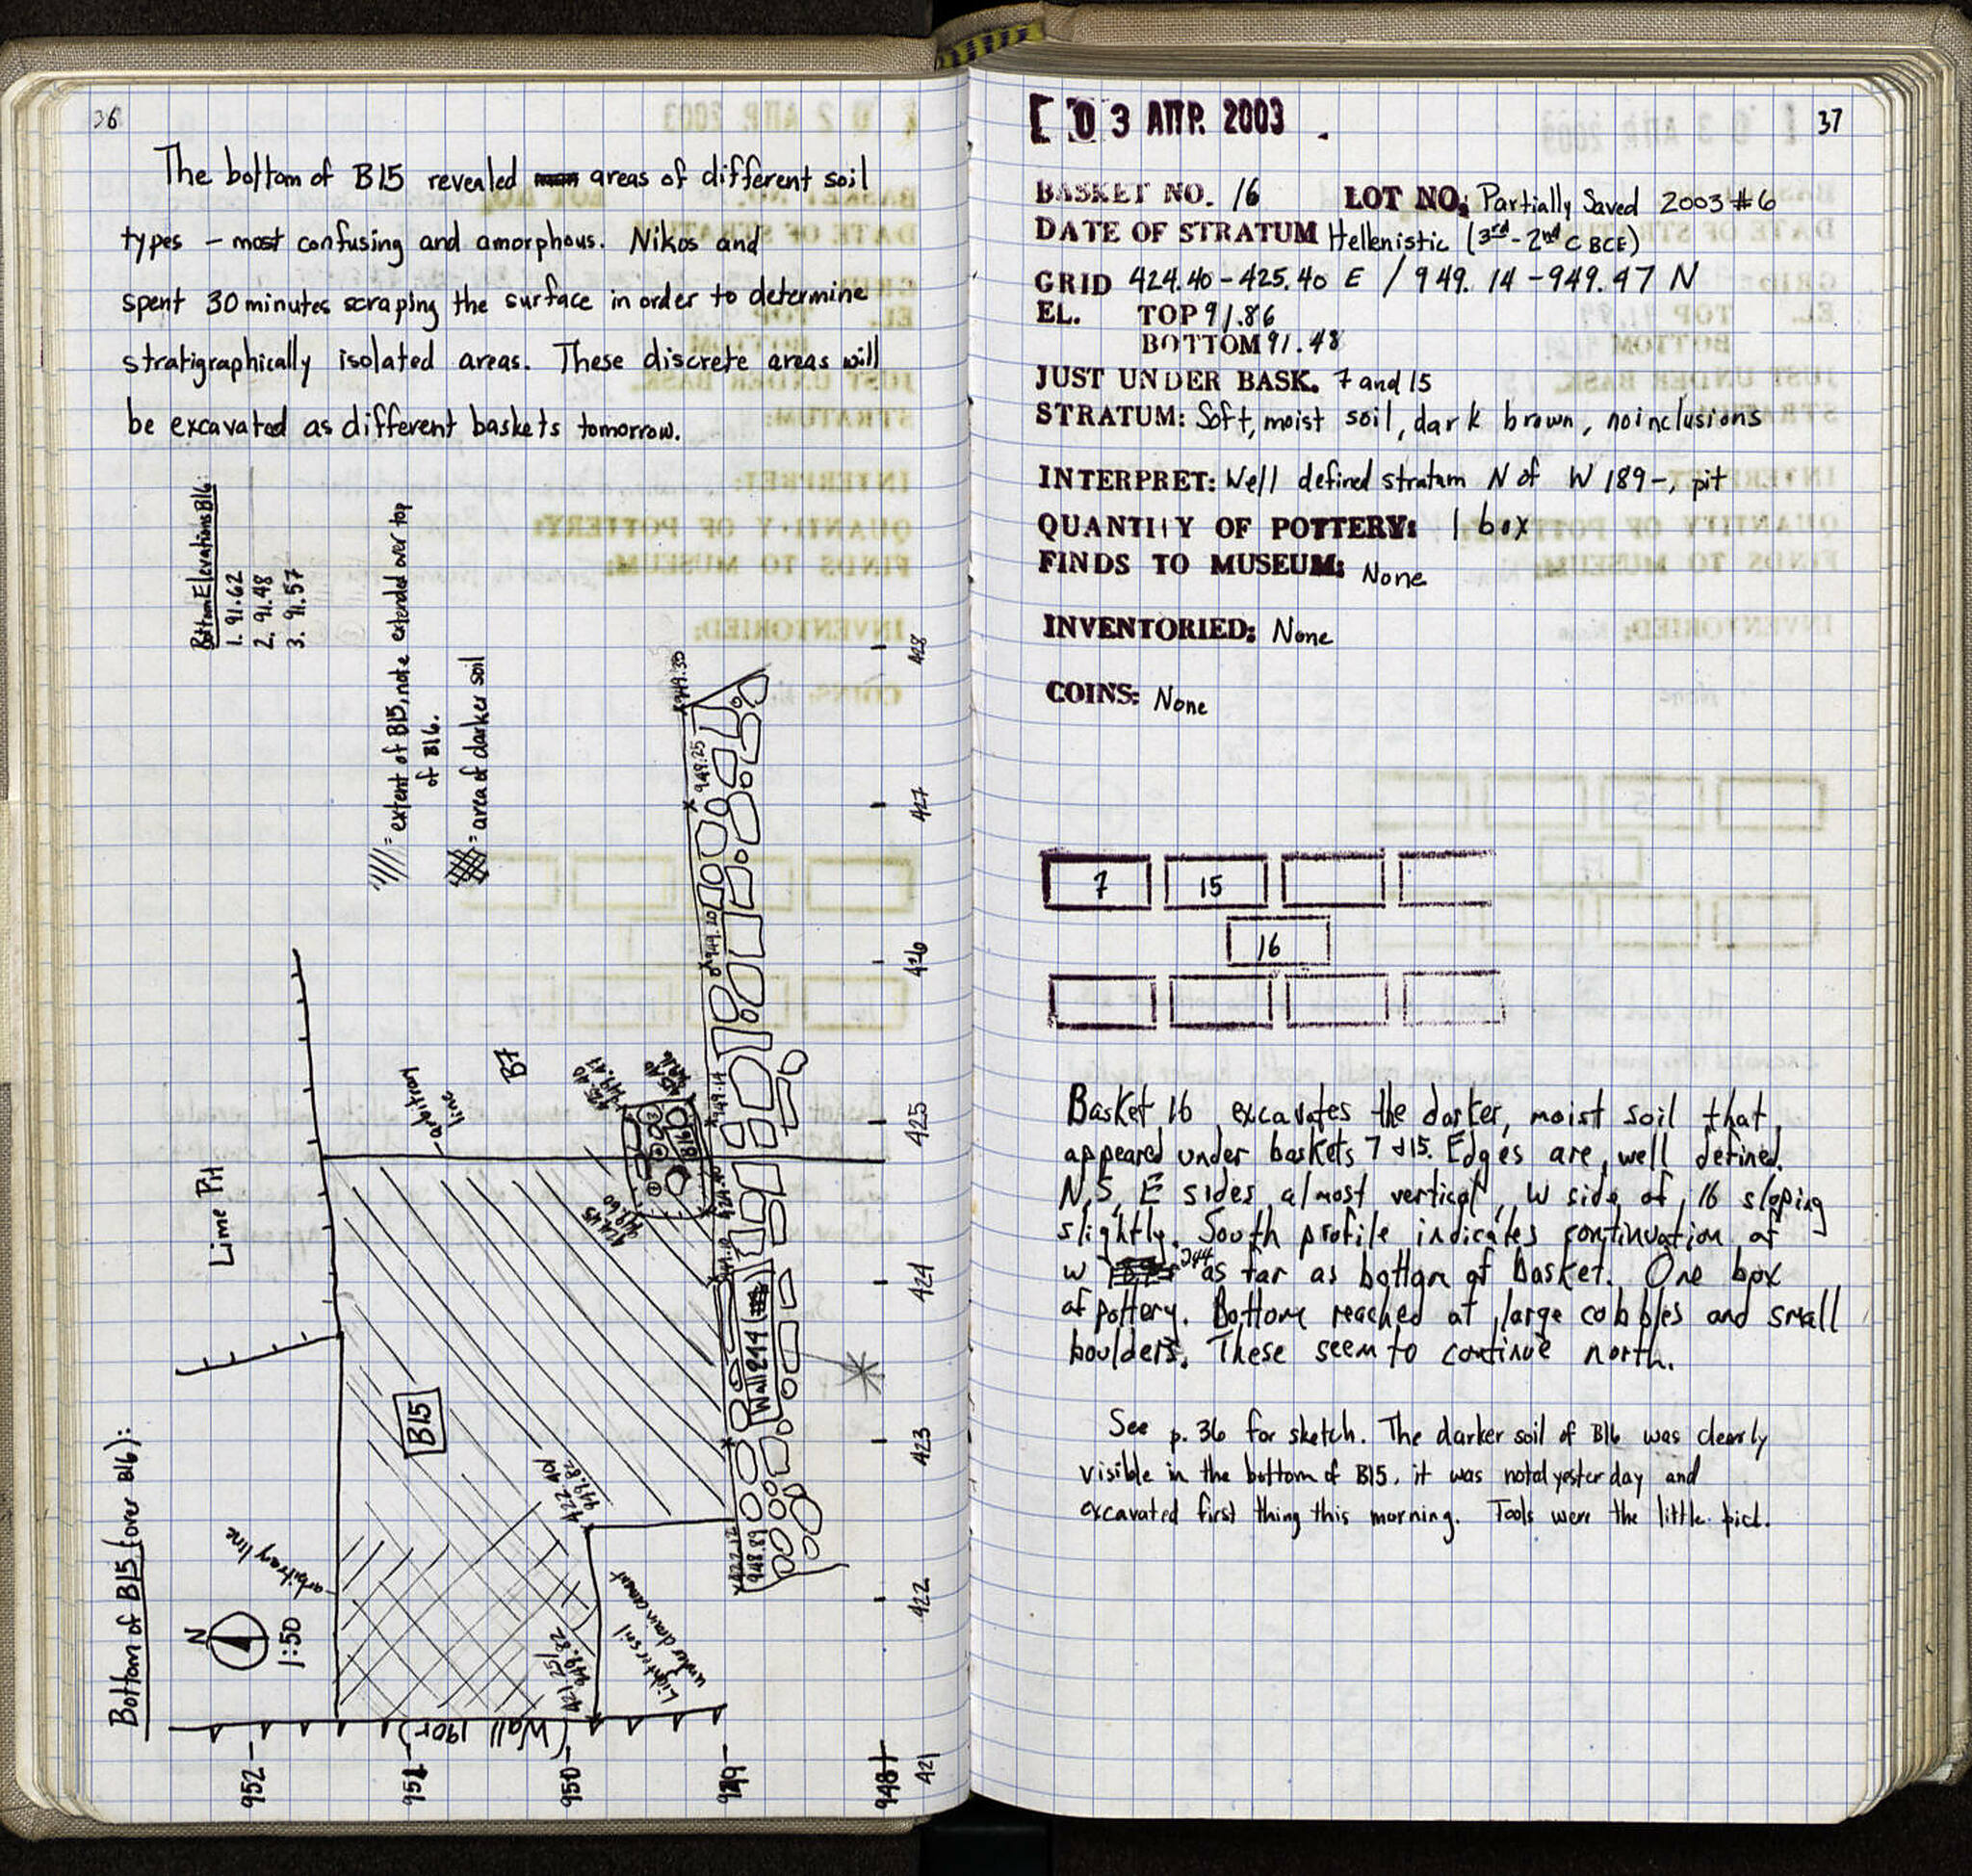 36
The bottom of B15 revealed areas of different soil
types – most confusing and amorphous. Nikos and
spent 30 minutes scraping the surface in order to determine
stratigraphically isolated areas. These discrete areas will
be excavated as different baskets tomorrow.
Bottom Elevations B16:
1. 91.62
2. 91.48
3. 91.57
= extent of B15, note extended over top
of B16.
= area of darker soil
Bottom of B15 (over B16):
N
1:50
arbitrary line
Lime Pit
arbitrary
line
B7
B15
B16
1
2
3
425.40
949.47
424.45
949.60
424.40
422.40
949.82
421.25
949.82
422.12
948.89
949.10
949.14
949.20
949.25
949.30
Wall 244
Lighter soil
under drain cement
(Wall 190r)
952
951
950
949
948
421
422
423
424
425
426
427
428
37
03 ΑΠΡ. 2003
BASKET NO. 16 LOT NO: Partially Saved 2003 #6
DATE OF STRATUM Hellenistic (3rd - 2nd C BCE)
GRID 424.40 - 425.40 E / 949.14 - 949.47 N
EL. TOP 91.86
BOTTOM 91.48
JUST UNDER BASK. 7 and 15
STRATUM: Soft, moist soil, dark brown, no inclusions
INTERPRET: Well defined stratum N of W 189-, pit
QUANTITY OF POTTERY: 1 box
FINDS TO MUSEUM: None
INVENTORIED: None
COINS: None
7 15
16
Basket 16 excavates the darker, moist soil that
appeared under baskets 7 & 15. Edges are well defined.
N, S, E sides almost vertical, W side of 16 sloping
slightly. South profile indicates continuation of
W 244 as far as bottom of basket. One box
of pottery. Bottom reached at large cobbles and small
boulders. These seem to continue north.
See p. 36 for sketch. The darker soil of B16 was clearly
visible in the bottom of B15, it was noted yesterday and
excavated first thing this morning. Tools were the little pick.